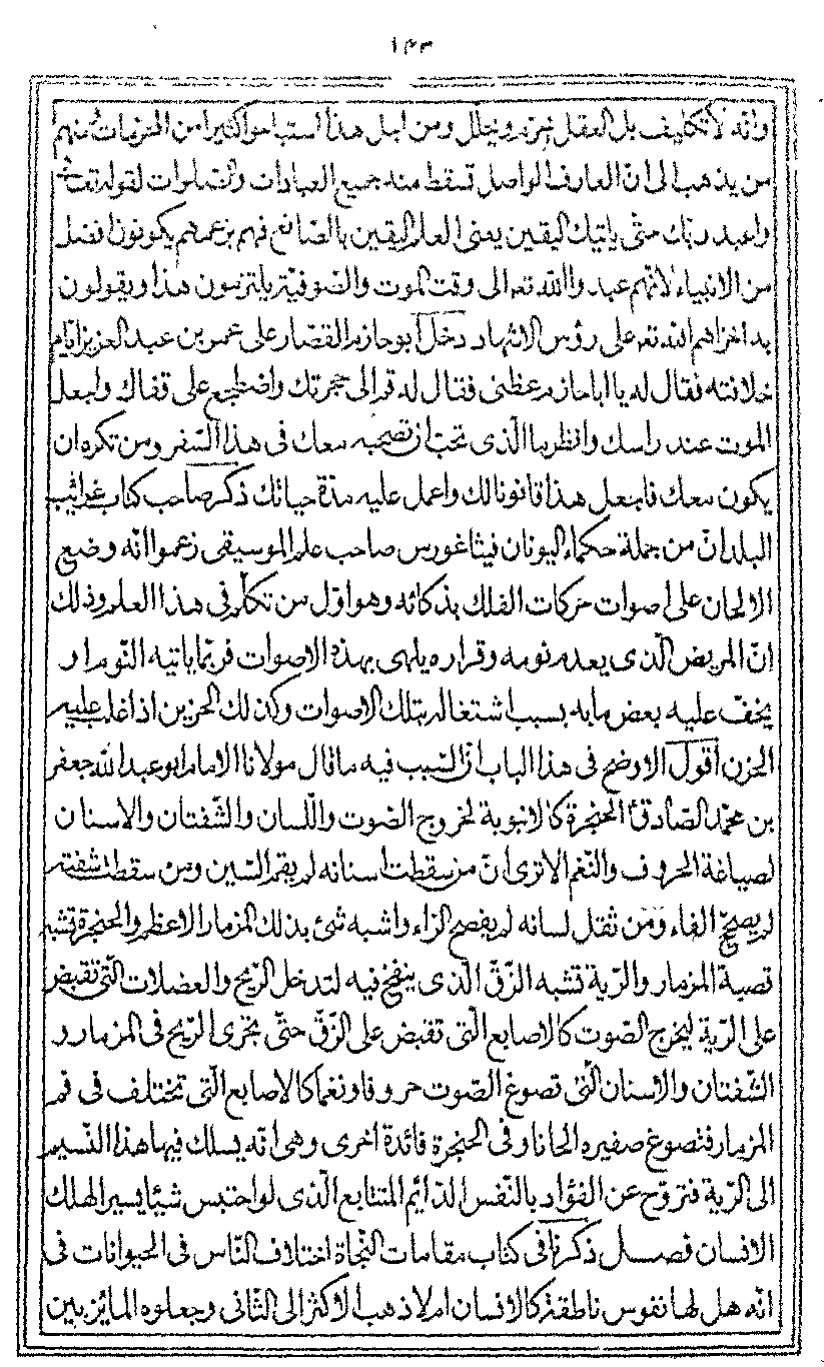 ١٤٣
وانه لا تكليف بل العقل يحرّم ويحلّل ومن اجل هذا استباحوا كثيرا من المحرّمات ومنهم
من يذهب الى انّ العارف الواصل تسقط منه جميع العبادات والصلوات لقوله تع
واعبد ربّك حتّى ياتيك اليقين يعنى العلم اليقين بالصّانع فهم بزعمهم يكونون افضل
من الانبياء لانّهم عبدوا الله تع الى وقت الموت والصّوفيّة يلتزمون هذا ويقولون
به اخزاهم الله تع على رؤس الاشهاد دخل ابو حازم القصّار على عمر بن عبد العزيز ايّام
خلافته فقال له يا ابا حازم عظنى فقال له قم الى حجرتك واضطجع على قفاك واجعل
الموت عند راسك وانظر ما الّذى تحبّ ان تصحبه معك فى هذا السّفر ومن تكره ان
يكون معك فاجعل هذا قانونا لك واعمل عليه مدّة حياتك ذكر صاحب كتاب غرائب
البلدان من جملة حكماء اليونان فيثاغورس صاحب علم الموسيقى زعموا انّه وضع
الالحان على اصوات حركات الفلك بذكائه وهو اوّل من تكلّم فى هذا العلم وذلك
انّ المريض الّذى يعدم نومه وقراره يلهى بهذه الاصوات فربّما ياتيه النّوم او
يخفّ عليه بعض ما به بسبب اشتغاله بتلك الاصوات وكذلك الحزين اذا غلب عليه
الحزن اقول الاوضح فى هذا الباب انّ السّبب فيه ما قال مولانا الامام ابو عبد الله جعفر
بن محمّد الصّادق الحنجرة كالانبوبة لخروج الصّوت واللّسان والشّفتان والاسنان
لصياغة الحروف والنّغم الا ترى انّ من سقطت اسنانه لم يقم السّين ومن سقطت شفته
لم يصحّ الفاء ومن ثقل لسانه لم يفصح الراء واشبه شئ بذلك المزمار الاعظم والحنجرة تشبه
قصبة المزمار والرّية تشبه الزّقّ الّذى ينفخ فيه لتدخل الرّيح والعضلات الّتى تقبض
على الرّية ليخرج الصّوت كالاصابع الّتى تقبض على الزّقّ حتّى تجرى الرّيح فى المزمار و
الشّفتان والاسنان الّتى تصوغ الصّوت حروفا ونغما كالاصابع الّتى تختلف فى فم
المزمار فتصوغ صفيره الحانا وفى الحنجرة فائدة اخرى وهى انّه يسلك فيها هذا النّسيم
الى الرّية فتروّح عن الفؤاد بالنّفس الدّائم المتتابع الّذى لو احتبس شيئا يسيرا لهلك
الانسان فصل ذكرنا فى كتاب مقامات النّجاة اختلاف النّاس فى الحيوانات فى
انّه هل لها نفوس ناطقة كالانسان ام لا ذهب الاكثر الى الثّانى وجعلوه المائز بين